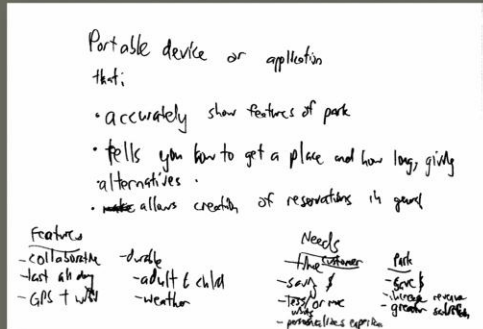 Portable device or application
that;
• accurately show features of park
• tells you how to get a place and how long, giving
alternatives.
• allows creation of reservations in general
Features
- collaborative
- last all day
- GPS +
- durable
- adult & child
- weather
Needs
- customer
- save $
- less
- personalizes
Park
- save $
- increase revenue
- greater